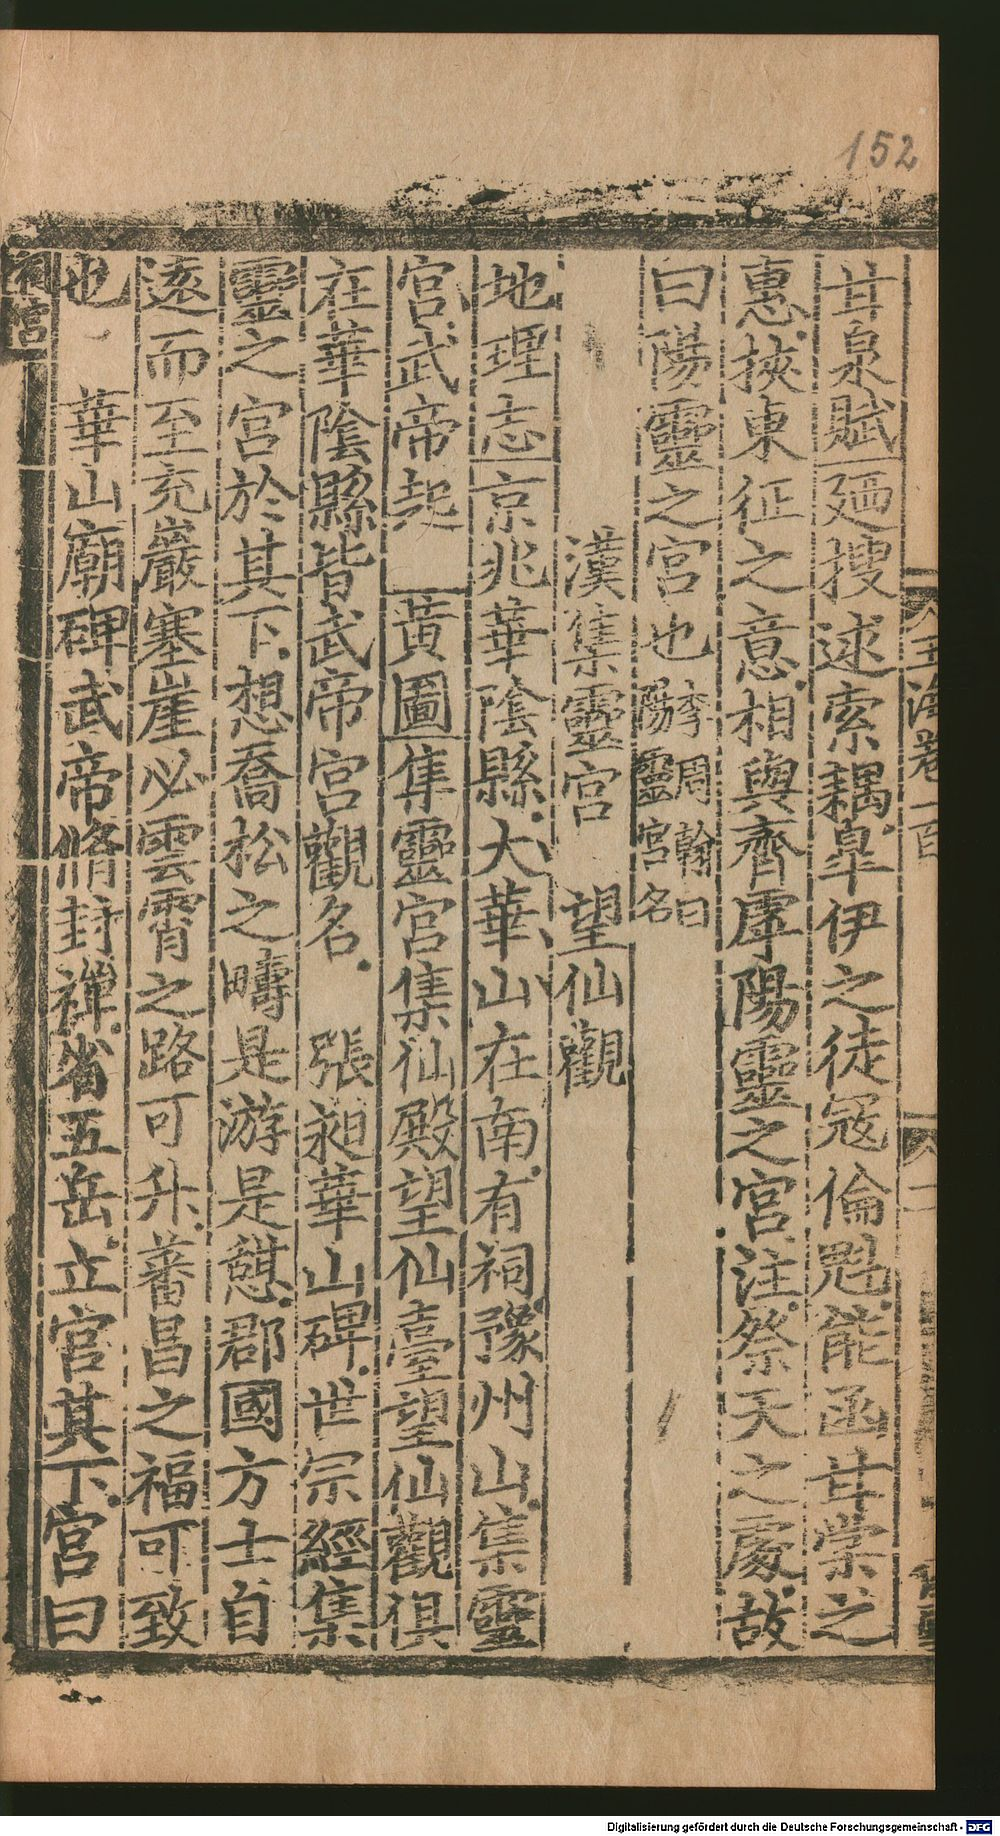 152
甘泉賦廼搜逑索耦臯伊之徒冠倫魁能函甘棠之
惠挾東征之意相與齊虖陽靈之宮注祭天之處故
曰陽靈之宮也李周翰曰陽靈宮名
漢集靈宮 望仙觀
地理志京兆華陰縣大華山在南有祠豫州山集靈
宮武帝起 黃圖集靈宮集仙殿望仙臺望仙觀俱
在華陰縣皆武帝宮觀名 張昶華山碑世宗經集
靈之宮於其下想喬松之疇是游是憩郡國方士自
遠而至充巖塞崖必雲霄之路可升蕃昌之福可致
也 華山廟碑武帝脩封禪省五岳立宮其下宮曰
祠宮
玉海卷一百
Digitalisierung gefördert durch die Deutsche Forschungsgemeinschaft - DFG